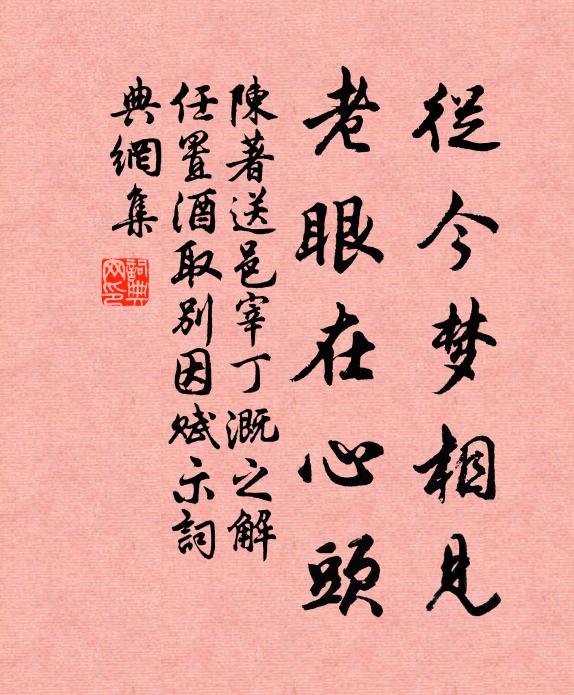 從今梦相見
老眼在心頭
陳著送邑宰丁溉之解
任置酒取别因赋示詞
典網集
詞典
网印